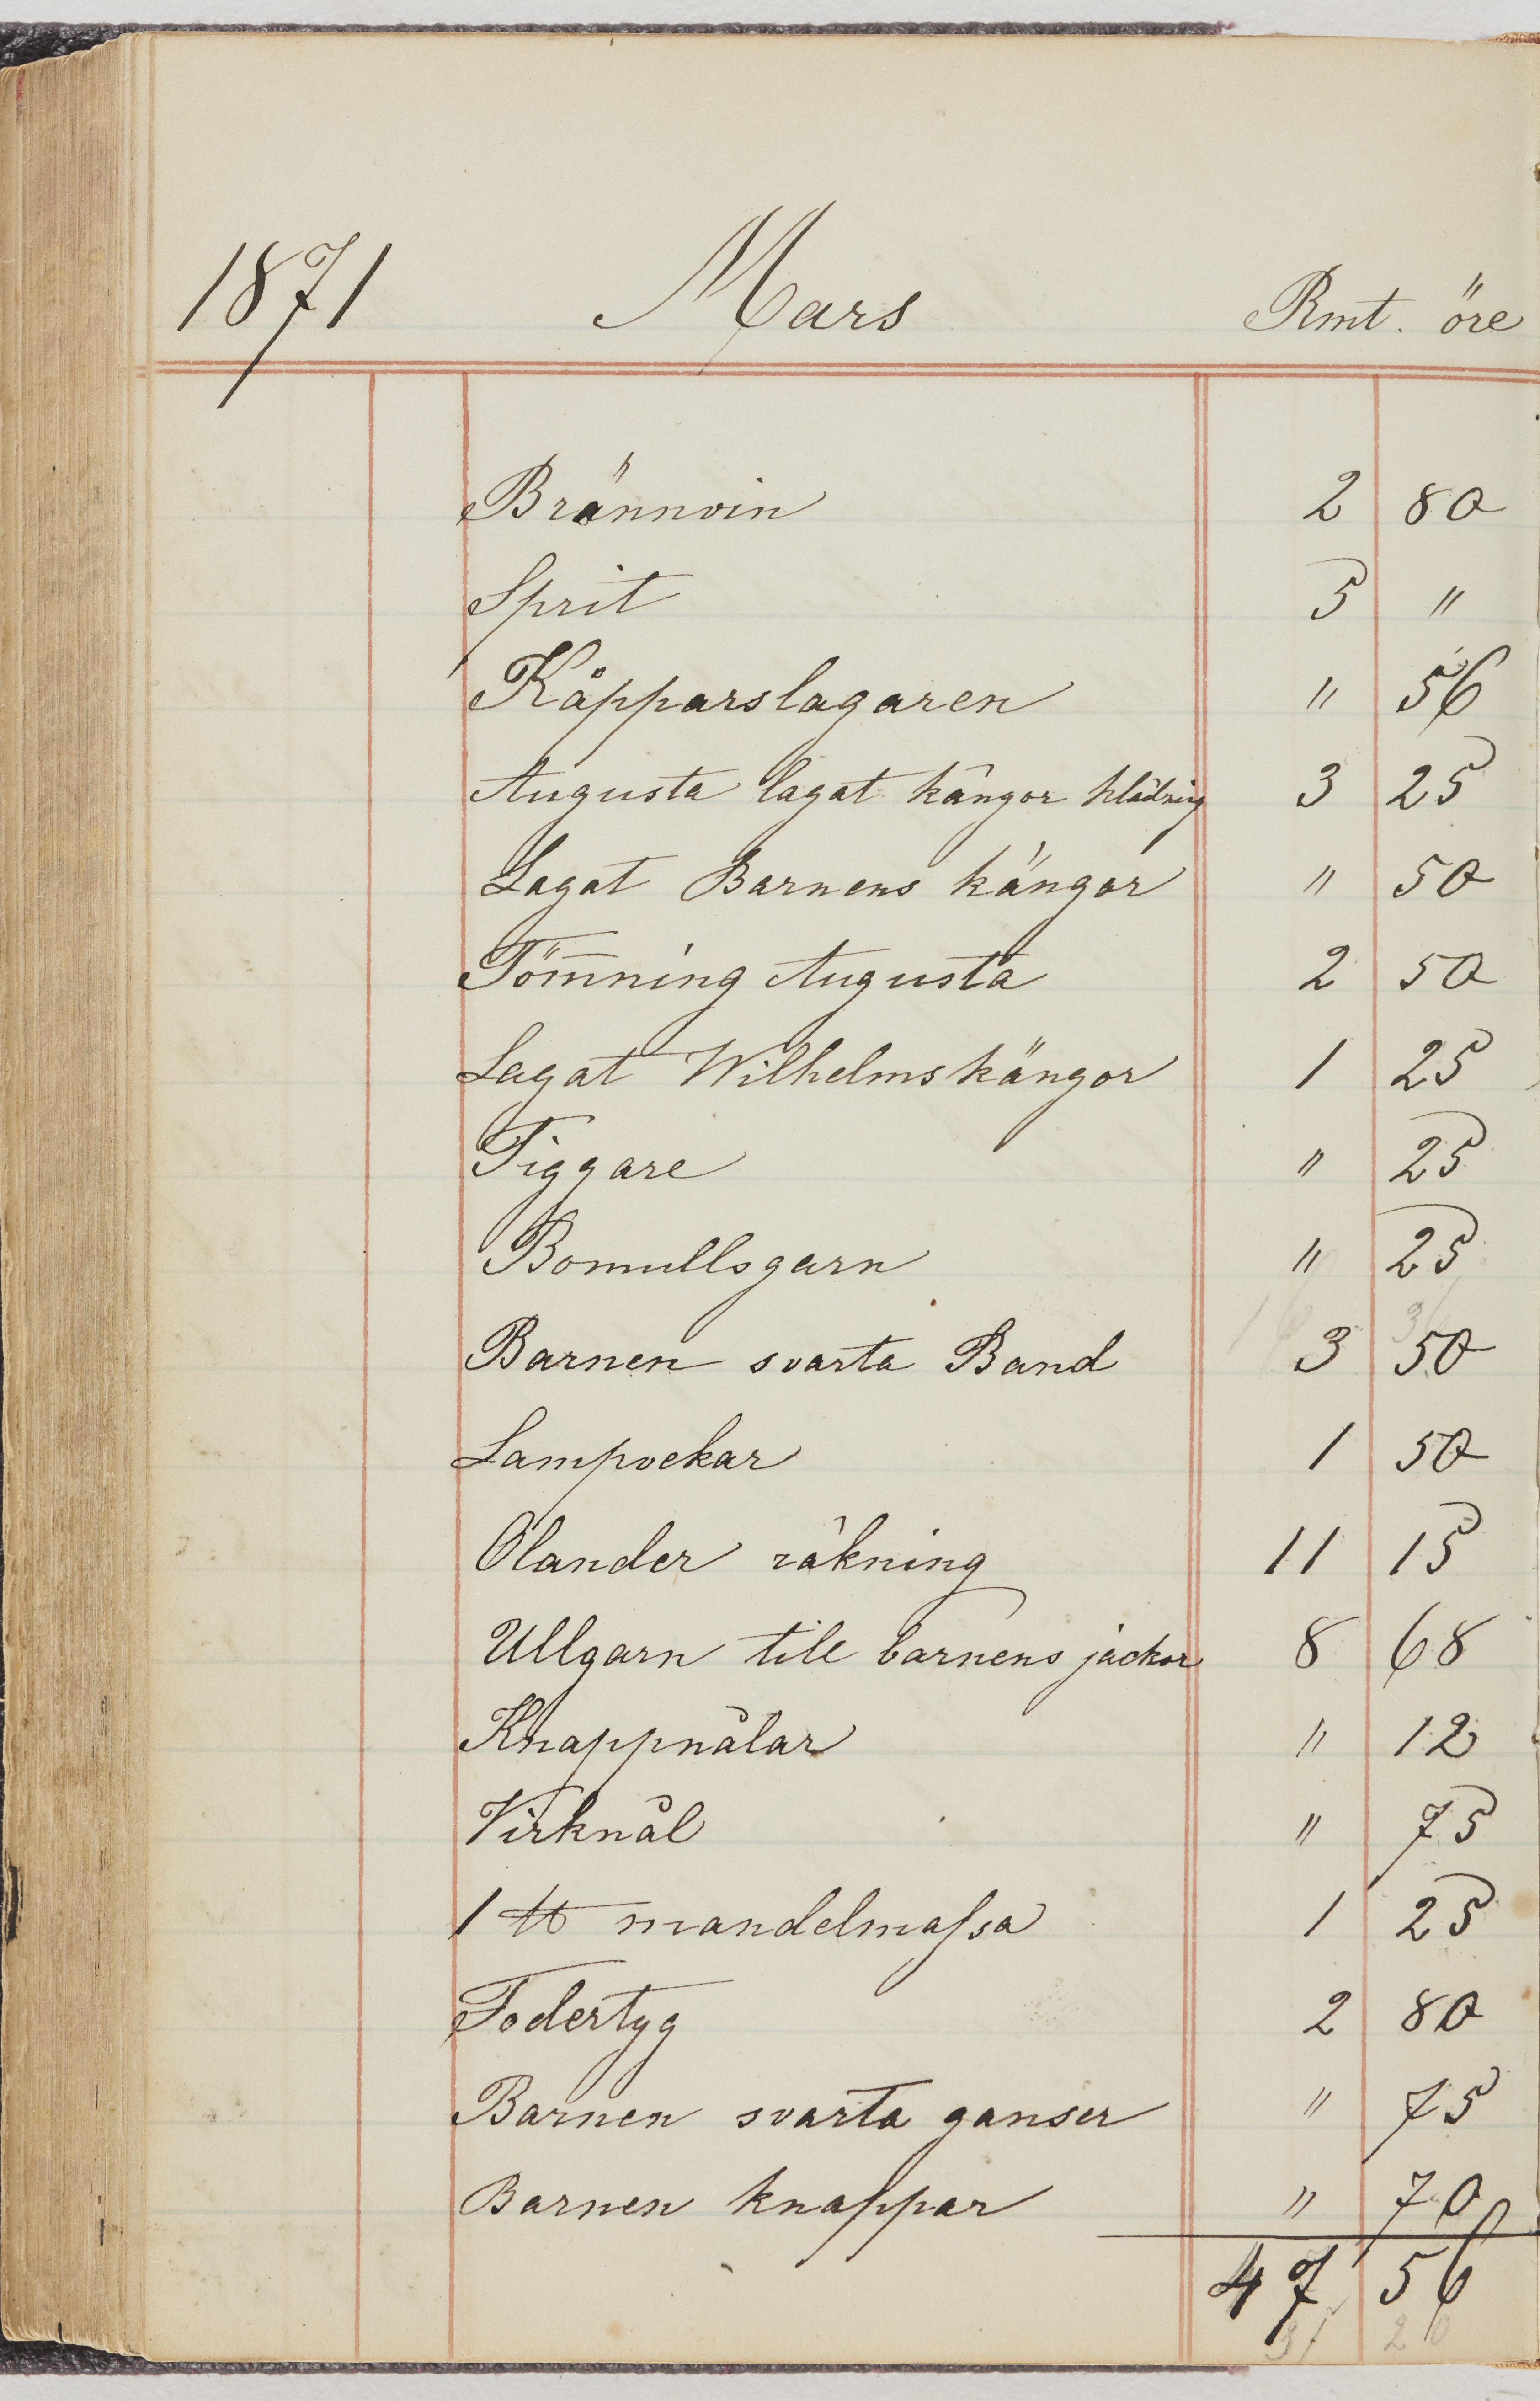 1871 Mars Rmt. öre
Brännvin 2 80
Sprit 5 "
Kåpparslagaren " 56
Augusta lagat kängor klädning 3 25
Lagat Barnens kängor " 50
Töm̅ning Augusta 2 50
Lagat Wilhelms kängor 1 25
Tiggare " 25
Bomullsgarn " 25
Barnen svarta Band 3 50
Lampvekar 1 50
Olander räkning 11 15
Ullgarn till barnens jackor 8 68
Knappnålar " 12
Virknål " 75
1 ℔ mandelmaſsa 1 25
Fodertyg 2 80
Barnen svarta ganser " 75
Barnen knappar " 70
47 56